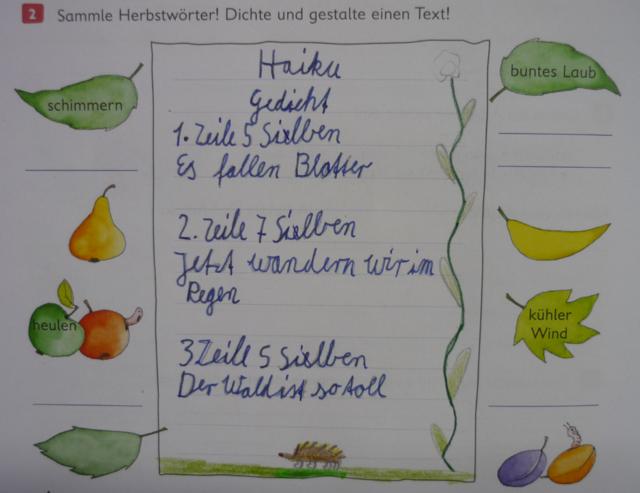 2 Sammle Herbstwörter! Dichte und gestalte einen Text!
schimmern
buntes Laub
heulen
kühler
Wind
Haiku
Gedicht
1. Zeile 5 Sielben
Es fallen Blotter
2. Zeile 7 Sielben
Jetzt wandern wir im
Regen
3 Zeile 5 Sielben
Der Wald ist so toll